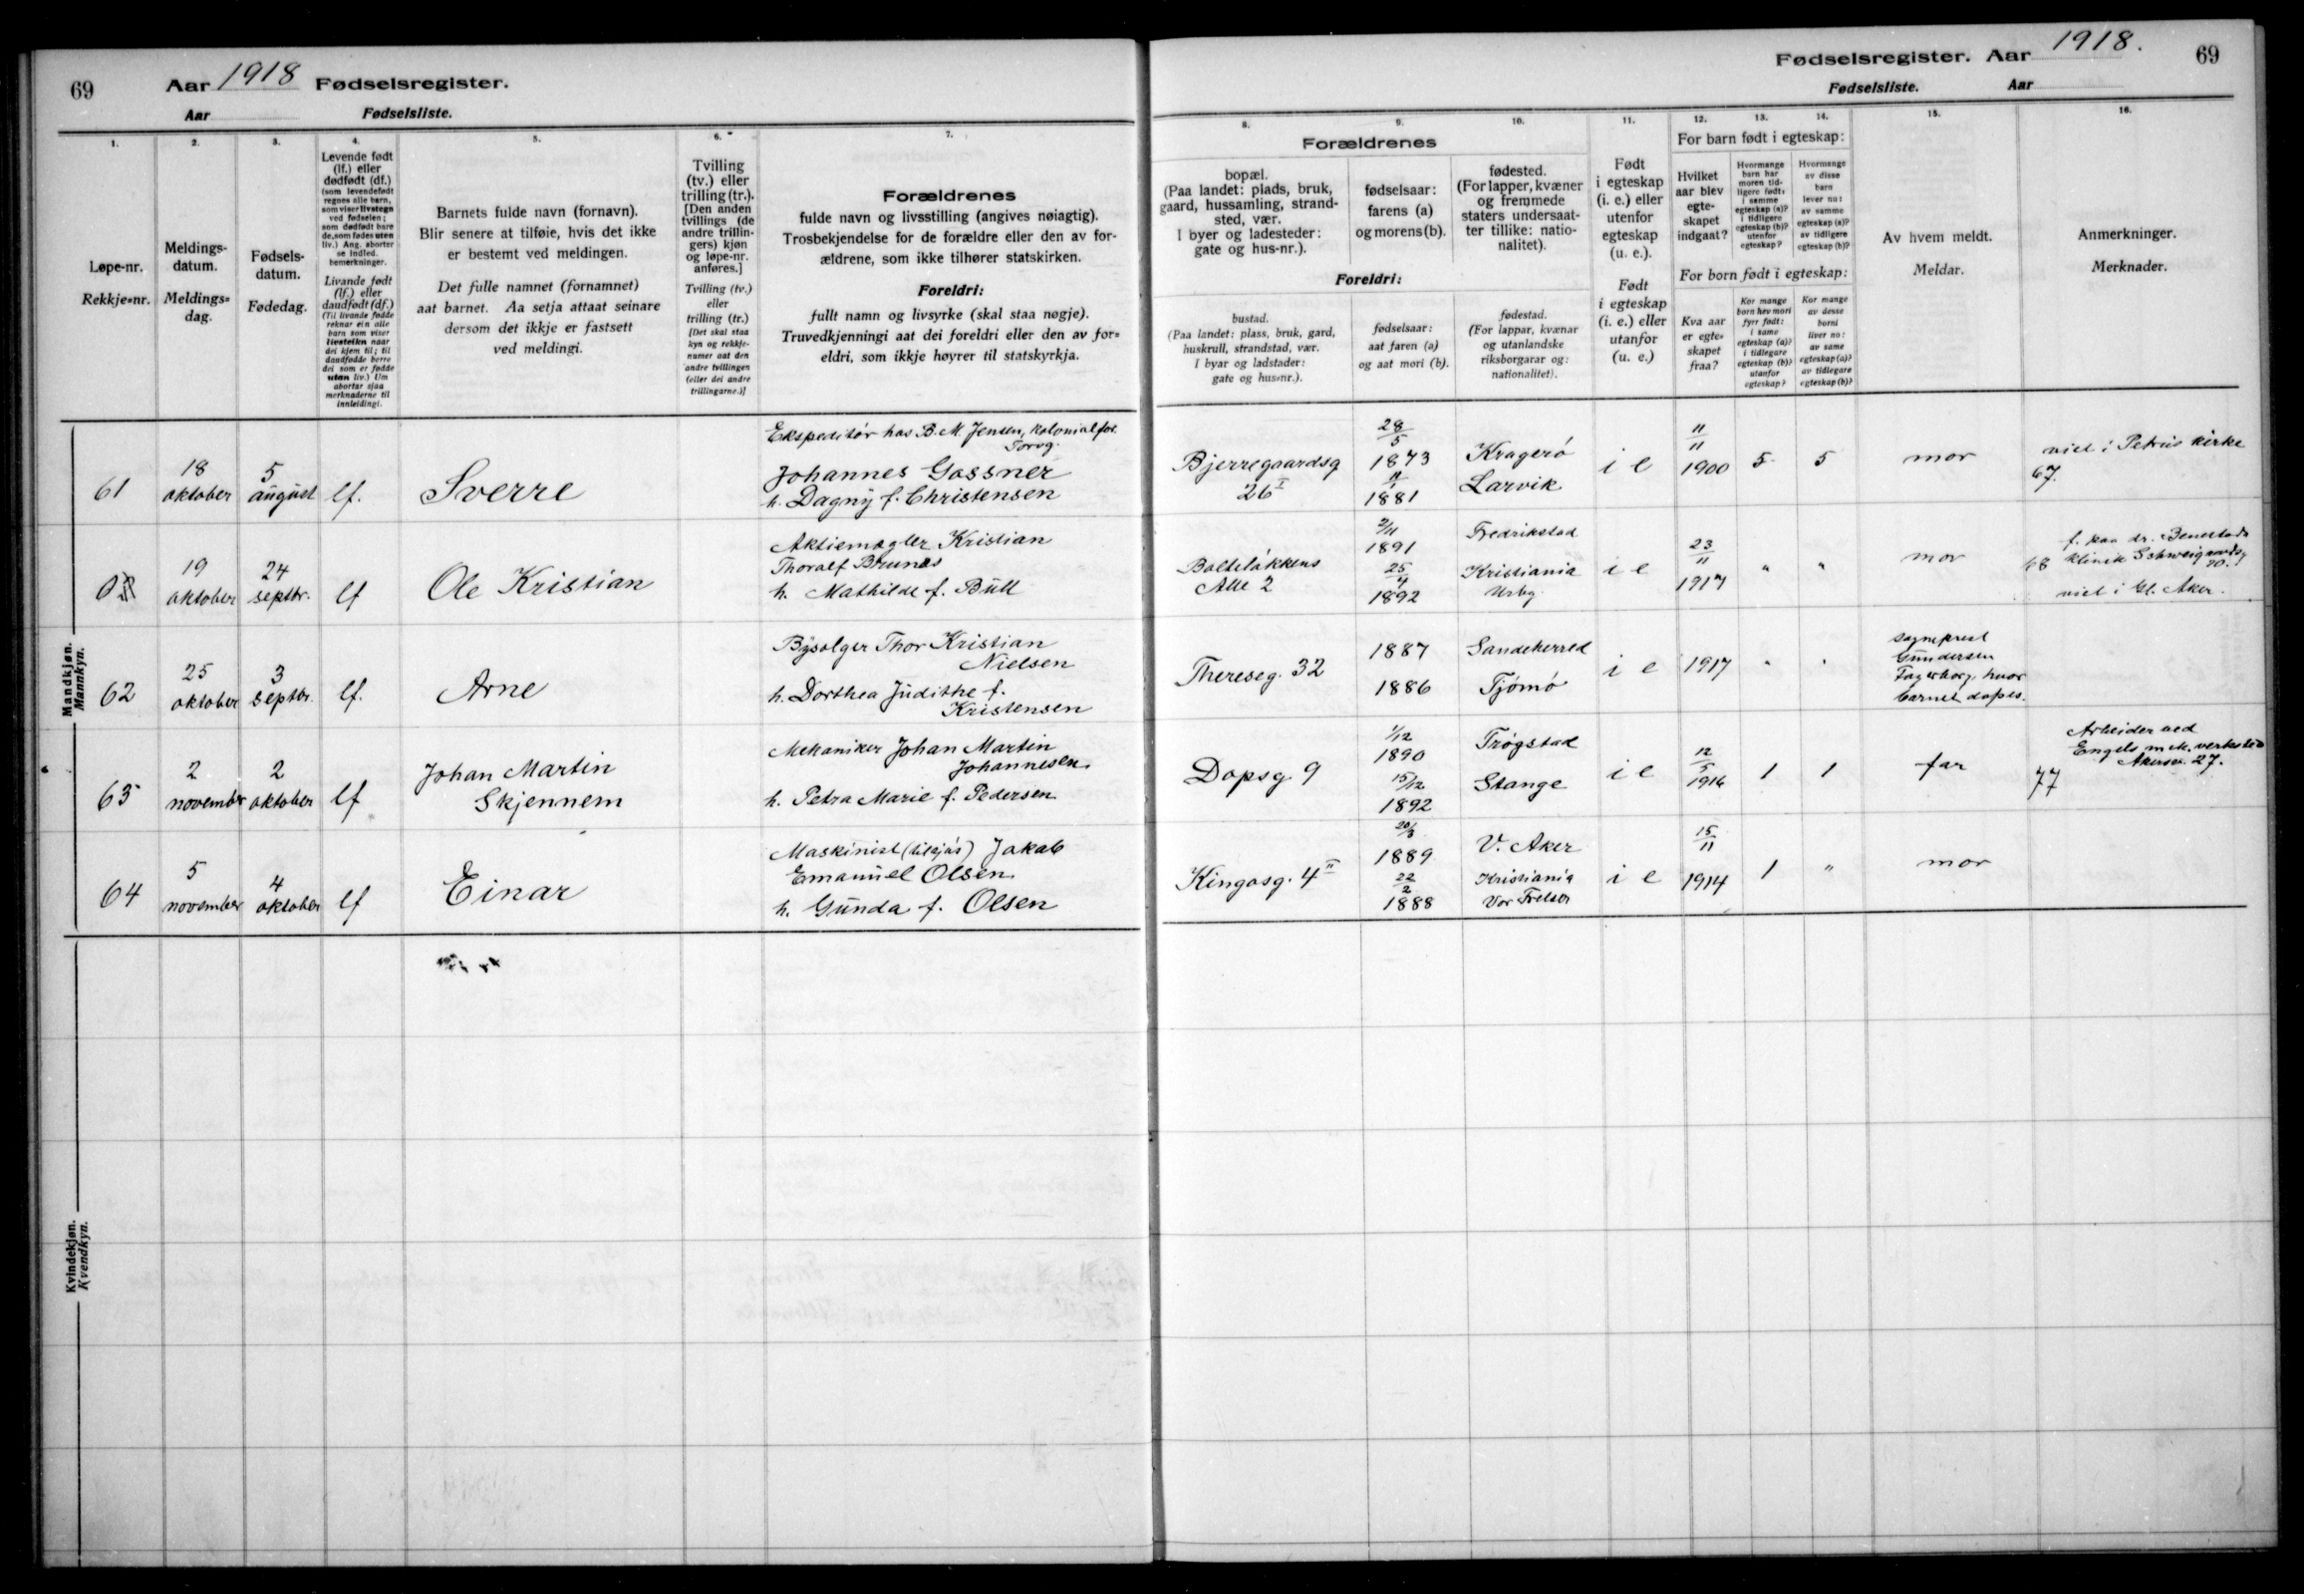 69
Aar 1918 Fødselsregister.
Aar Fødselsliste.
1.
2.
3.
4.
5.
6.
7.
Løpe-nr.
Rekkje=nr.
Meldings-
datum.
Meldings=
dag.
Fødsels-
datum.
Fødedag.
Levende født
(lf.) eller
dødfødt (df.)
(som levendefødt
regnes alle barn,
som viser livstegn
ved fødselen;
som dødfødt bare
de, som fødes uten
liv.) Ang. aborter
se indled.
bemerkninger.
Livande født
(lf.) eller
daudfødt (df.)
(Til livande fødde
reknar ein alle
barn som viser
livsteikn naar
dei kjem til; til
daudfødde berre
dei som er fødde
utan liv.) Um
abortar sjaa
merknaderne til
innleidingi.
Barnets fulde navn (fornavn).
Blir senere at tilføie, hvis det ikke
er bestemt ved meldingen.
Det fulle namnet (fornamnet)
aat barnet. Aa setja attaat seinare
dersom det ikkje er fastsett
ved meldingi.
Tvilling
(tv.) eller
trilling (tr.).
[Den anden
tvillings (de
andre trillin-
gers) kjøn
og løpe-nr.
anføres.]
Tvilling (tv.)
eller
trilling (tr.)
[Det skal staa
kyn og rekkje-
numer aat den
andre tvillingen
(eller dei andre
trillingarne.)]
Forældrenes
fulde navn og livsstilling (angives nøiagtig).
Trosbekjendelse for de forældre eller den av for-
ældrene, som ikke tilhører statskirken.
Foreldri:
fullt namn og livsyrke (skal staa nøgje).
Truvedkjenningi aat dei foreldri eller den av for=
eldri, som ikkje høyrer til statskyrkja.
Mandkjøn.
Mannkyn.
61
18
oktober
5
august
lf.
Sverre
Ekspeditør hos B. M. Jensen, kolonialfor.
Torvg.
Johannes Gossner
h. Dagny f. Christensen
19
oktober
24
septbr.
lf
Ole Kristian
Aktiemægler Kristian
Thoralf Brunæs
h. Mathilde f. Bull
62
25
oktober
3
septbr.
lf.
Arne
Bysolger Thor Kristian
Nielsen
h. Dorthea Judithe f.
Kristensen
63
2
november
2
oktober
lf
Johan Martin
Skjennem
Mekaniker Johan Martin
Johannesen
h. Petra Marie f. Pedersen
64
5
november
4
oktober
lf
Einar
Maskinist (tilsjøs) Jakob
Emanuel Olsen
h. Gunda f. Olsen
Kvindekjøn.
Kvendkyn.
Fødselsregister. Aar 1918. 69
Fødselsliste. Aar
8.
9.
10.
11.
12.
13.
14.
15.
16.
Forældrenes
bopæl.
(Paa landet: plads, bruk,
gaard, hussamling, strand-
sted, vær.
I byer og ladesteder:
gate og hus-nr.).
fødselsaar:
farens (a)
og morens (b).
fødested.
(For lapper, kvæner
og fremmede
staters undersaat-
ter tillike: natio-
nalitet).
Foreldri:
bustad.
(Paa landet: plass, bruk, gard,
huskrull, strandstad, vær.
I byar og ladstader:
gate og hus=nr.).
fødselsaar:
aat faren (a)
og aat mori (b).
fødestad.
(For lappar, kvænar
og utanlandske
riksborgarar og:
nationalitet).
Født
i egteskap
(i. e.) eller
utenfor
egteskap
(u. e.).
Født
i egteskap
(i. e.) eller
utanfor
(u. e.)
For barn født i egteskap:
Hvilket
aar blev
egte-
skapet
indgaat?
Hvormange
barn har
moren tid-
ligere født:
i samme
egteskap (a)?
i tidligere
egteskap (b)?
utenfor
egteskap?
Hvormange
av disse
barn
lever nu:
av samme
egteskap (a)?
av tidligere
egteskap (b)?
For born født i egteskap:
Kva aar
er egte=
skapet
fraa?
Kor mange
born hev mori
fyrr født:
i same
egteskap (a)?
i tidlegare
egteskap (b)?
utanfor
egteskap?
Kor mange
av desse
borni
liver no:
av same
egteskap (a)?
av tidlegare
egteskap (b)?
Av hvem meldt.
Meldar.
Anmerkninger.
Merknader.
Bjerregaardsg
26 I
28/5
1873
11/1
1881
Kragerø
Larvik
i e
11/11
1900
5
5
mor
67.
viet i Petrus kirke
Bolteløkkens
Alle 2
2/11
1891
25/4
1892
Fredrikstad
Kristiania
Urbg.
i e
23/11
1917
"
"
mor
68
f. paa dr. Benestads
klinik Schweigaardsg
20.
viet i Gl. Aker.
Thereseg. 32
1887
1886
Sandeherred
Tjømø
i e
1917
"
"
sogneprest
Gundersen
Fagerborg, hvor
barnet døpes.
Dopsg. 9
1/12
1890
15/12
1892
Trøgstad
Stange
i e
12/5
1916
1
1
far
77
Arbeider ved
Engels mek. verksted
Akersv. 27.
Kingosg. 4 II
20/3
1889
22/2
1888
V. Aker
Kristiania
Vor Frelser
i e
15/11
1914
1
"
mor